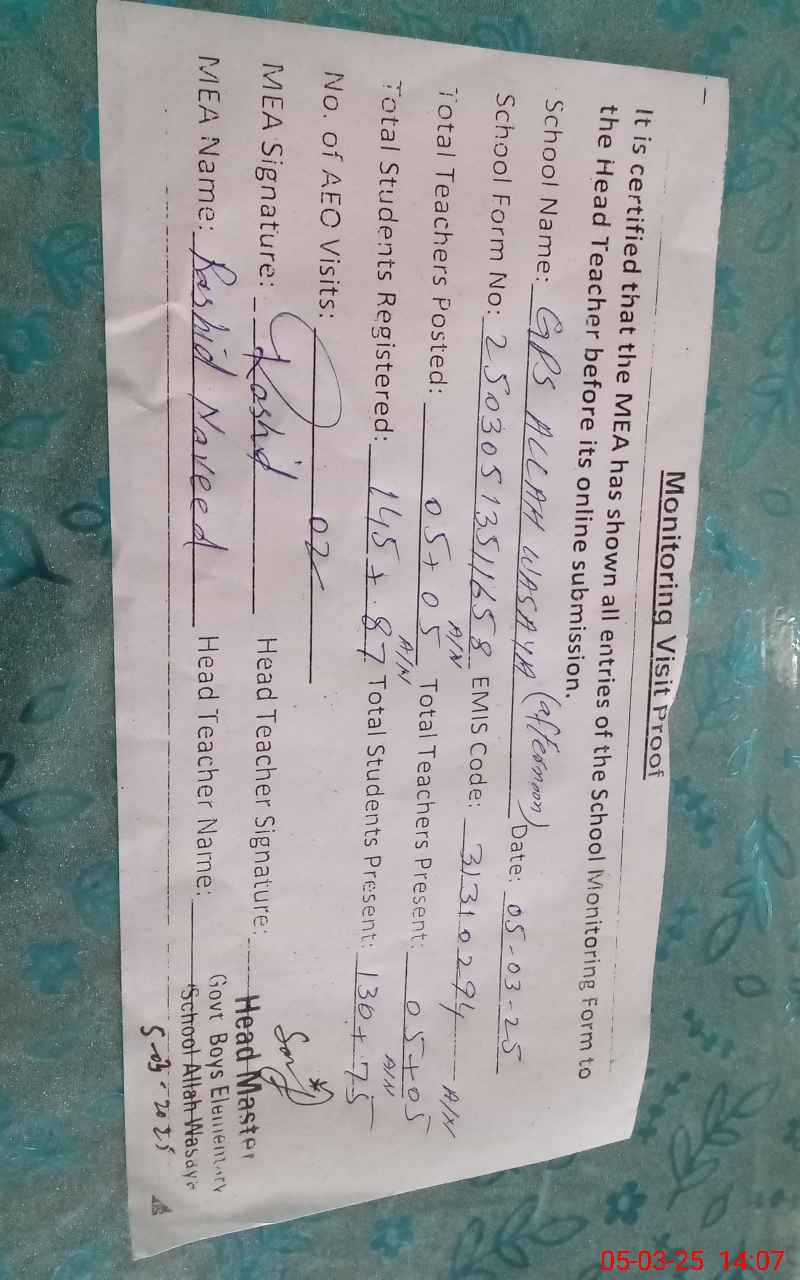 Monitoring Visit Proof
It is certified that the MEA has shown all entries of the School Monitoring Form to
the Head Teacher before its online submission.
School Name: GPS ALLAH WASAYA (afternoon) Date: 05-03-25
School Form No: 25030513511658 EMIS Code: 31310294 A/N
Total Teachers Posted: 05+05 A/N Total Teachers Present: 05+05
Total Students Registered: 145+87 A/N Total Students Present: 130+75 A/N
No. of AEO Visits: 02
MEA Signature: Rashid Head Teacher Signature:
Head Master
MEA Name: Rashid Naveed Head Teacher Name:
Govt Boys Elementary
School Allah Wasaya
5-03-2025
05-03-25 14:07